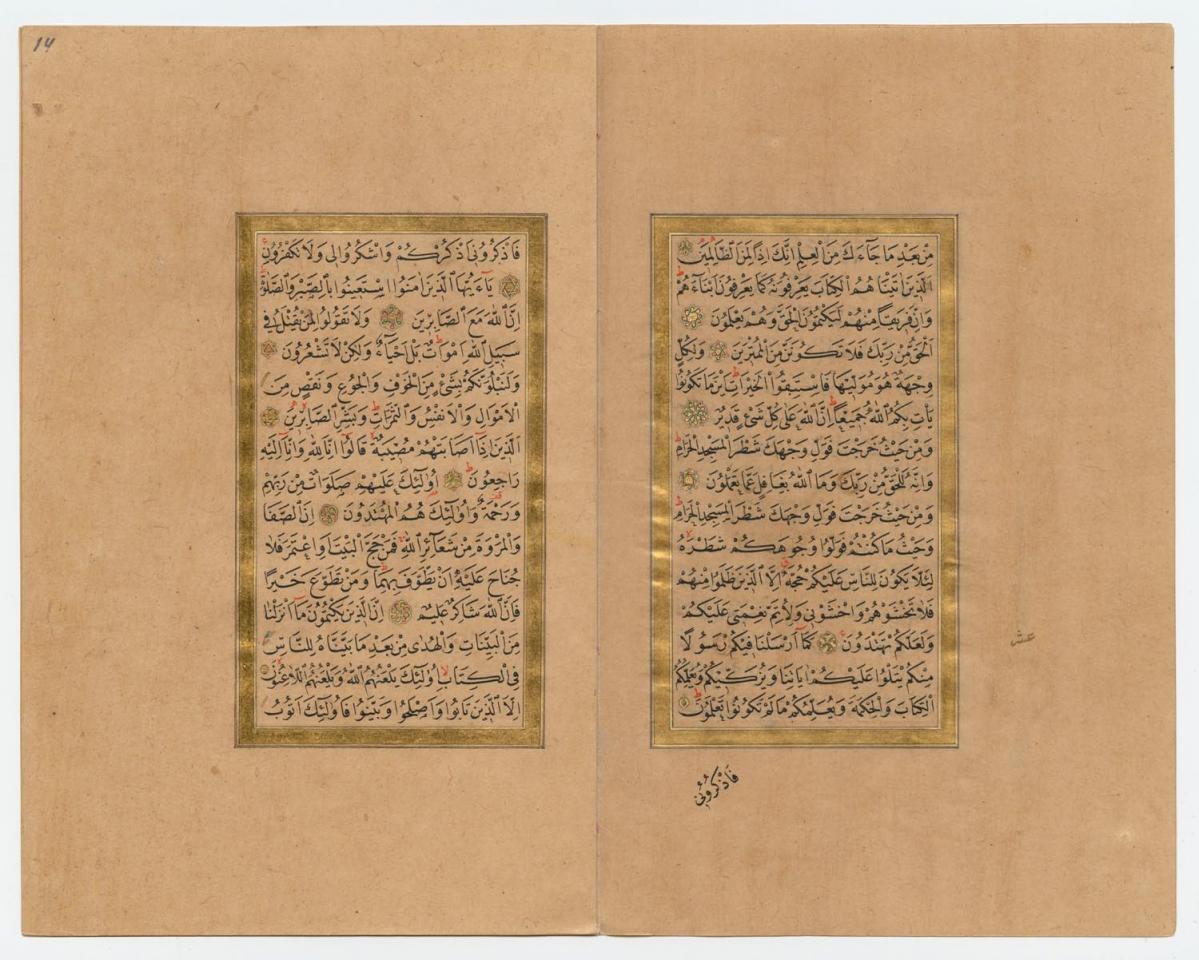 مِنْ بَعْدِ مَا جَآءَكَ مِنَ الْعِلْمِ اِنَّكَ اِذًا لَمِنَ الظَّالِمٖينَ
اَلَّذٖينَ اٰتَيْنَاهُمُ الْكِتَابَ يَعْرِفُونَهُ كَمَا يَعْرِفُونَ اَبْنَآءَهُمْ
وَاِنَّ فَرٖيقًا مِنْهُمْ لَيَكْتُمُونَ الْحَقَّ وَهُمْ يَعْلَمُونَ
اَلْحَقُّ مِنْ رَبِّكَ فَلَا تَكُونَنَّ مِنَ الْمُمْتَرٖينَ وَلِكُلٍّ
وِجْهَةٌ هُوَ مُوَلّٖيهَا فَاسْتَبِقُوا الْخَيْرَاتِ اَيْنَ مَا تَكُونُوا
يَاْتِ بِكُمُ اللّٰهُ جَمٖيعًا اِنَّ اللّٰهَ عَلٰى كُلِّ شَيْءٍ قَدٖيرٌ
وَمِنْ حَيْثُ خَرَجْتَ فَوَلِّ وَجْهَكَ شَطْرَ الْمَسْجِدِ الْحَرَامِ
وَاِنَّهُ لَلْحَقُّ مِنْ رَبِّكَ وَمَا اللّٰهُ بِغَافِلٍ عَمَّا تَعْمَلُونَ
وَمِنْ حَيْثُ خَرَجْتَ فَوَلِّ وَجْهَكَ شَطْرَ الْمَسْجِدِ الْحَرَامِ
وَحَيْثُ مَا كُنْتُمْ فَوَلُّوا وُجُوهَكُمْ شَطْرَهُ
لِئَلَّا يَكُونَ لِلنَّاسِ عَلَيْكُمْ حُجَّةٌ اِلَّا الَّذٖينَ ظَلَمُوا مِنْهُمْ
فَلَا تَخْشَوْهُمْ وَاخْشَوْنٖى وَلِاُتِمَّ نِعْمَتٖى عَلَيْكُمْ
وَلَعَلَّكُمْ تَهْتَدُونَ كَمَآ اَرْسَلْنَا فٖيكُمْ رَسُولًا
مِنْكُمْ يَتْلُوا عَلَيْكُمْ اٰيَاتِنَا وَيُزَكّٖيكُمْ وَيُعَلِّمُكُمُ
الْكِتَابَ وَالْحِكْمَةَ وَيُعَلِّمُكُمْ مَا لَمْ تَكُونُوا تَعْلَمُونَ
فَاذْكُرُونٖى
عشر
14
فَاذْكُرُونٖى اَذْكُرْكُمْ وَاشْكُرُوا لٖى وَلَا تَكْفُرُونِ
يَآ اَيُّهَا الَّذٖينَ اٰمَنُوا اسْتَعٖينُوا بِالصَّبْرِ وَالصَّلٰوةِ
اِنَّ اللّٰهَ مَعَ الصَّابِرٖينَ وَلَا تَقُولُوا لِمَنْ يُقْتَلُ فٖى
سَبٖيلِ اللّٰهِ اَمْوَاتٌ بَلْ اَحْيَآءٌ وَلٰكِنْ لَا تَشْعُرُونَ
وَلَنَبْلُوَنَّكُمْ بِشَيْءٍ مِنَ الْخَوْفِ وَالْجُوعِ وَنَقْصٍ مِنَ
الْاَمْوَالِ وَالْاَنْفُسِ وَالثَّمَرَاتِ وَبَشِّرِ الصَّابِرٖينَ
اَلَّذٖينَ اِذَآ اَصَابَتْهُمْ مُصٖيبَةٌ قَالُوٓا اِنَّا لِلّٰهِ وَاِنَّآ اِلَيْهِ
رَاجِعُونَ اُولٰٓئِكَ عَلَيْهِمْ صَلَوَاتٌ مِنْ رَبِّهِمْ
وَرَحْمَةٌ وَاُولٰٓئِكَ هُمُ الْمُهْتَدُونَ اِنَّ الصَّفَا
وَالْمَرْوَةَ مِنْ شَعَآئِرِ اللّٰهِ فَمَنْ حَجَّ الْبَيْتَ اَوِ اعْتَمَرَ فَلَا
جُنَاحَ عَلَيْهِ اَنْ يَطَّوَّفَ بِهِمَا وَمَنْ تَطَوَّعَ خَيْرًا
فَاِنَّ اللّٰهَ شَاكِرٌ عَلٖيمٌ اِنَّ الَّذٖينَ يَكْتُمُونَ مَآ اَنْزَلْنَا
مِنَ الْبَيِّنَاتِ وَالْهُدٰى مِنْ بَعْدِ مَا بَيَّنَّاهُ لِلنَّاسِ
فِى الْكِتَابِ اُولٰٓئِكَ يَلْعَنُهُمُ اللّٰهُ وَيَلْعَنُهُمُ اللَّاعِنُونَ
اِلَّا الَّذٖينَ تَابُوا وَاَصْلَحُوا وَبَيَّنُوا فَاُولٰٓئِكَ اَتُوبُ